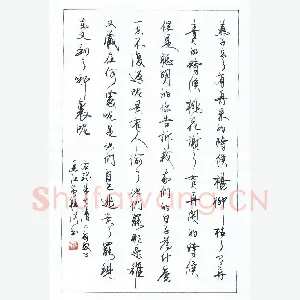 燕子去了有再來的時候楊柳枯了有再
青的時候桃花謝了有再開的時候
但是聰明的你告訴我我們的日子為什麼
一去不復返呢是有人偷了他們罷那是誰
又藏在何處呢是他們自己逃走了罷現
在又到了哪裏呢
Shufawang.CN